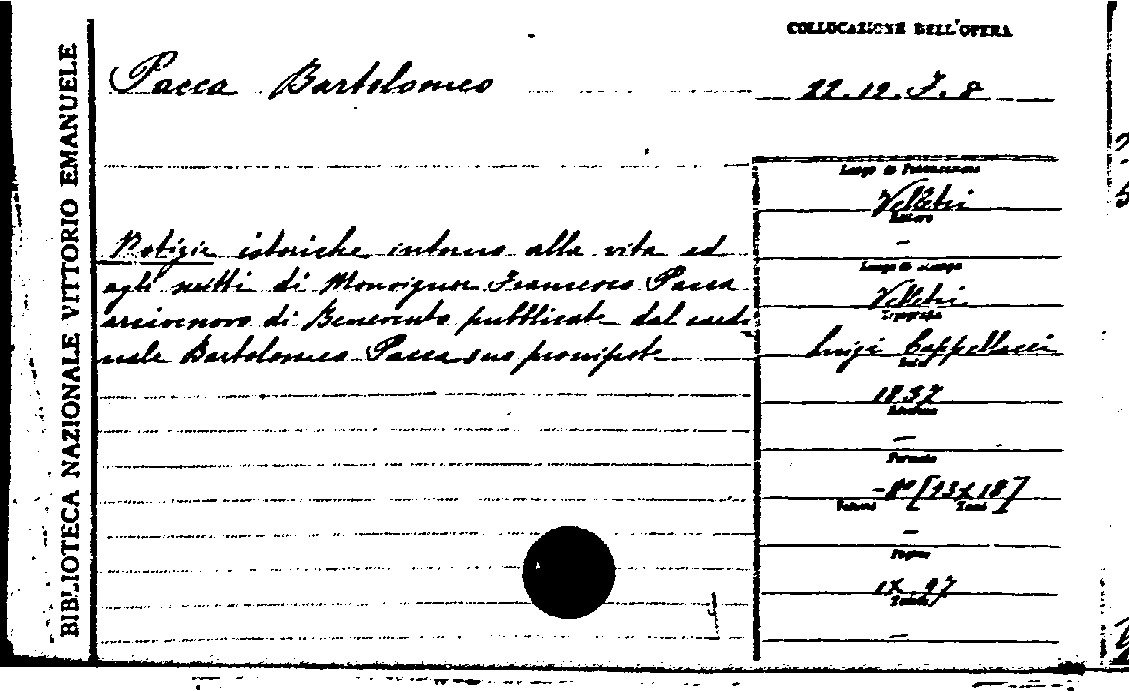 BIBLIOTECA NAZIONALE VITTORIO EMANUELE
COLLOCAZIONE DELL'OPERA
Pacca Bartolomeo
22.12.J.8
Luogo di Pubblicazione
Velletri
Editore
—
Luogo di stampa
Velletri
Tipografia
Luigi Cappellacci
Data
1837
Edizione
—
Formato
-8° [13x18]
Volumi Tomi
—
Pagine
IX. 97
Tavole
—
Notizie istoriche intorno alla vita ed
agli scritti di Monsignor Francesco Pacca
arcivescovo di Benevento pubblicate dal cardi
nale Bartolomeo Pacca suo pronipote